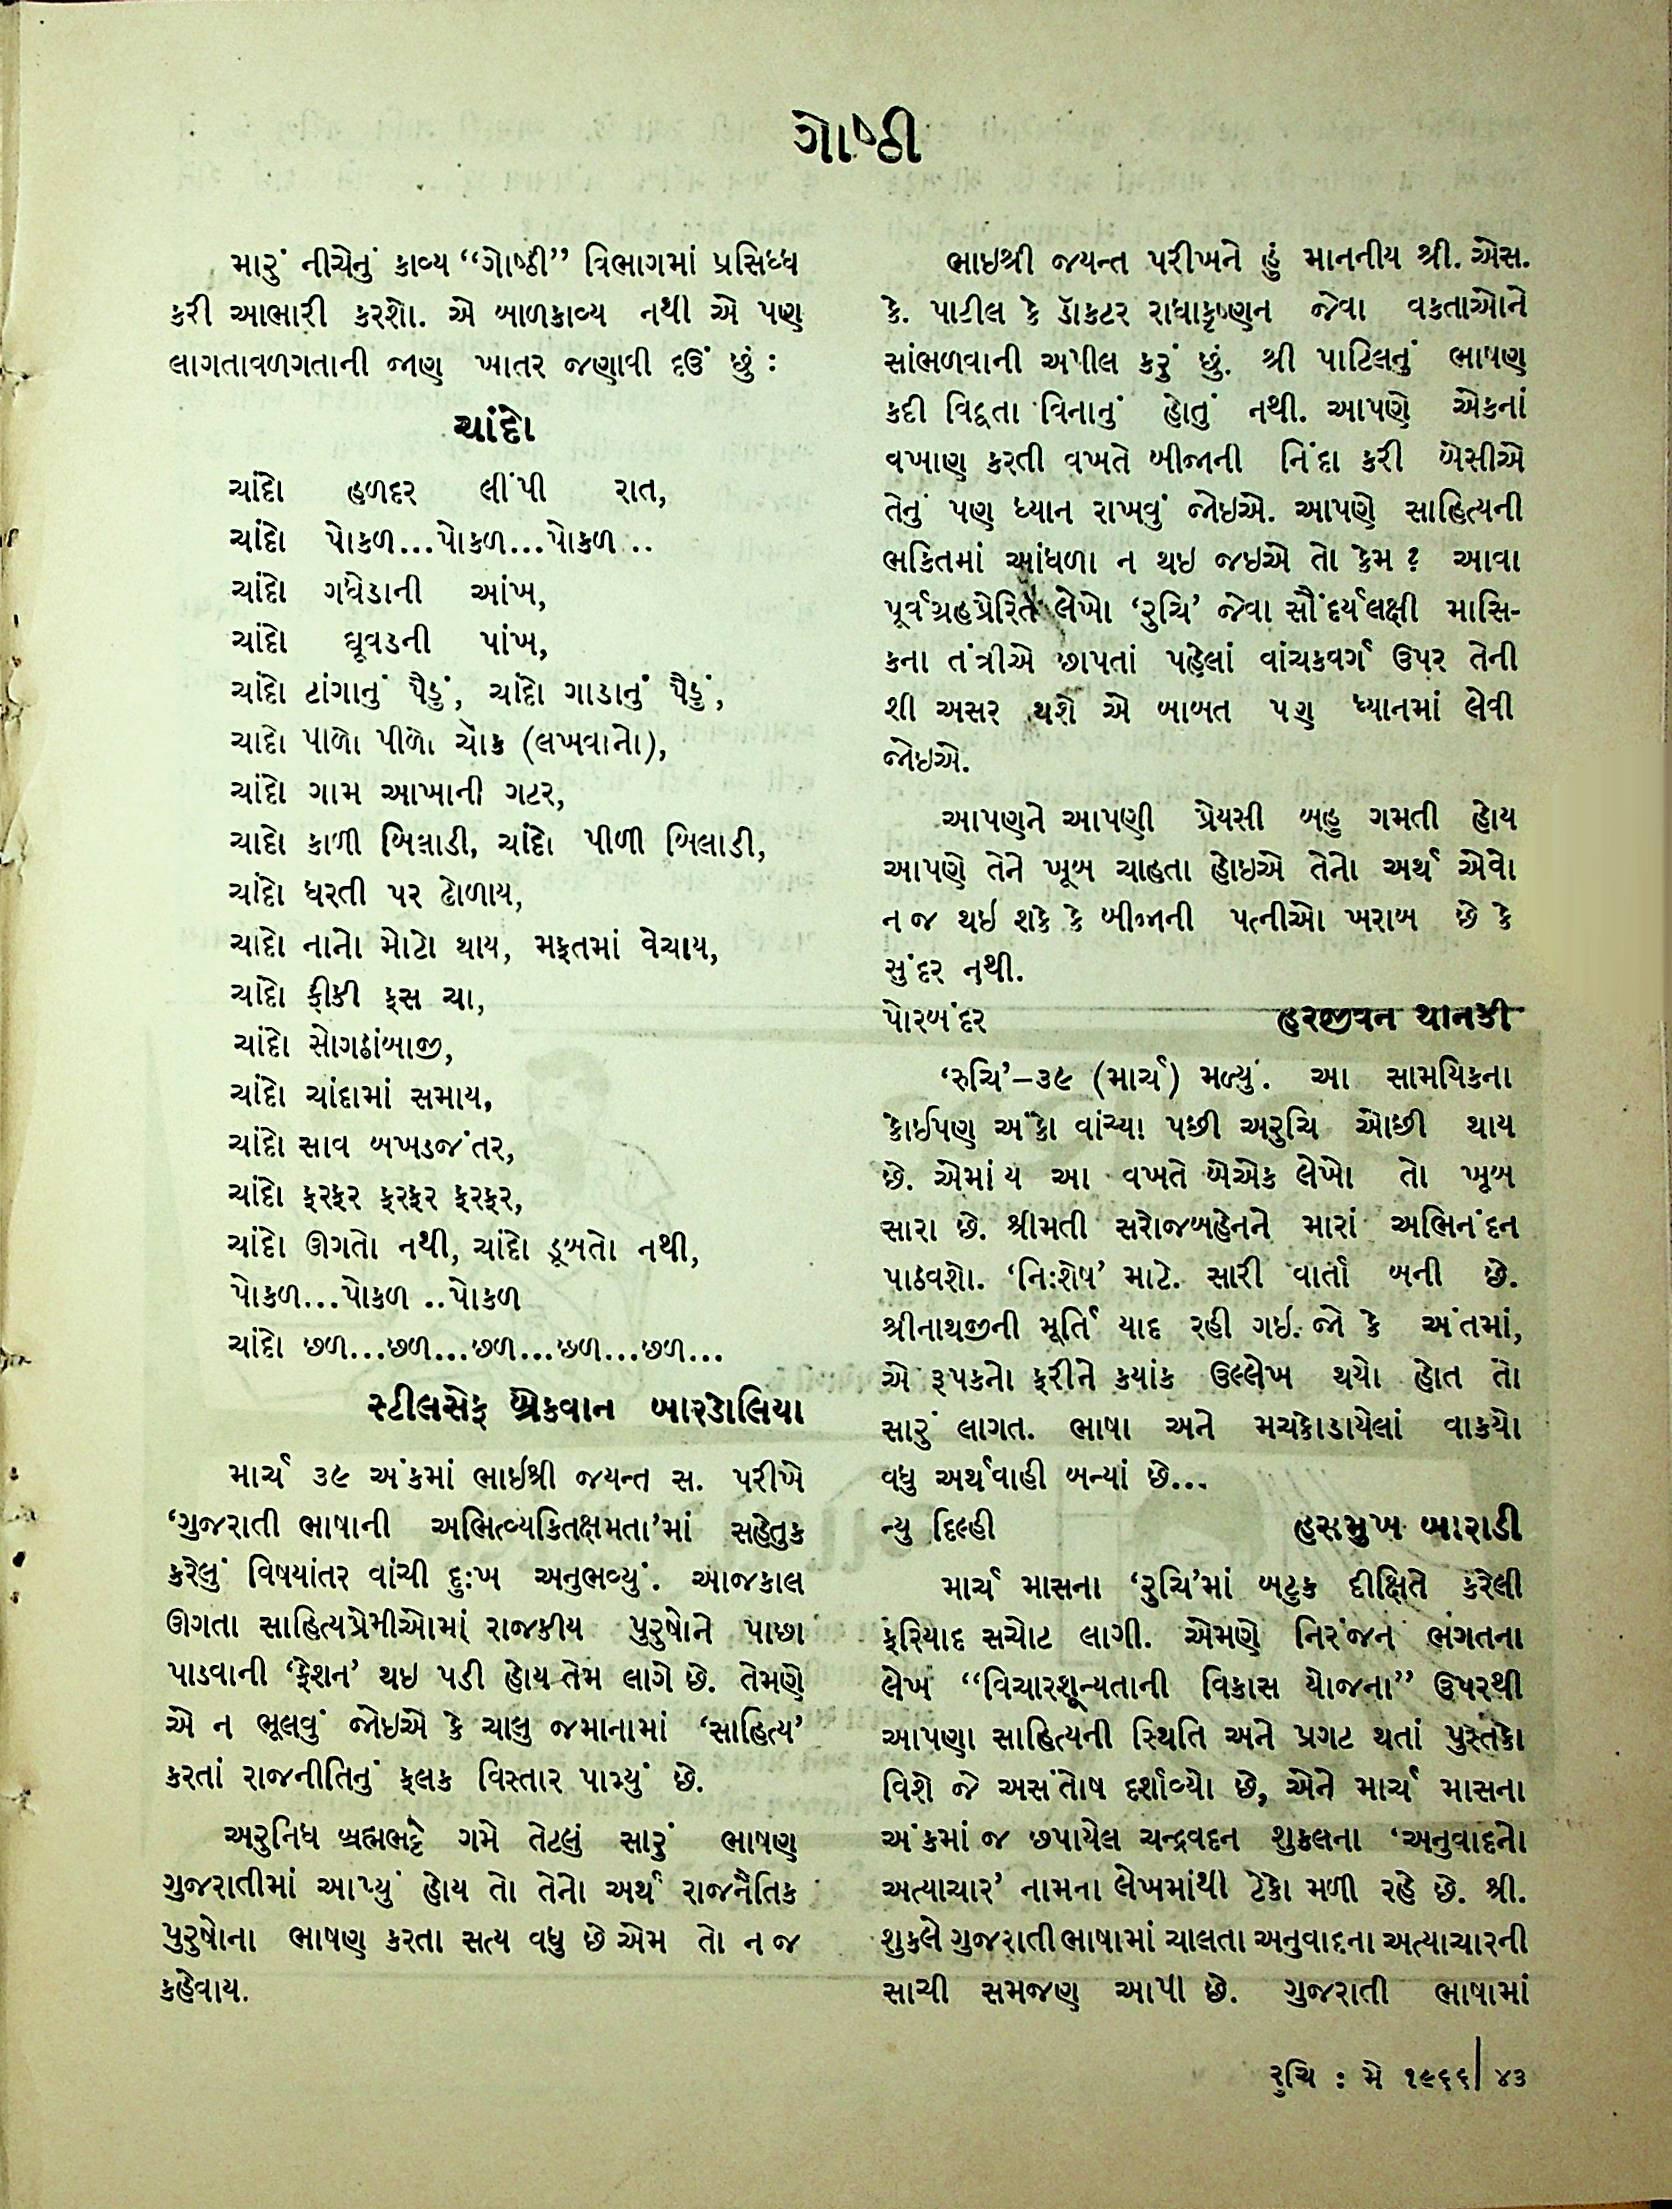 ગોષ્ઠી
મારું નીચેનું કાવ્ય “ગોષ્ઠી” વિભાગમાં પ્રસિધ્ધ
કરી આભારી કરશો. એ બાળકાવ્ય નથી એ પણ
લાગતાવળગતાની જાણ ખાતર જણાવી દઉં છું :
ચાંદો
ચાંદો હળદર લીંપી રાત,
ચાંદો પોકળ...પોકળ...પોકળ ..
ચાંદો ગધેડાની આંખ,
ચાંદો ઘૂવડની પાંખ,
ચાંદો ટાંગાનું પૈડું, ચાંદો ગાડાનું પૈડું,
ચાંદો પીળો પીળો ચોક (લખવાનો),
ચાંદો ગામ આખાની ગટર,
ચાંદો કાળી બિલાડી, ચાંદો પીળી બિલાડી,
ચાંદો ધરતી પર ઢોળાય,
ચાંદો નાનો મોટો થાય, મફતમાં વેચાય,
ચાંદો ફીકી ફસ ચા,
ચાંદો સોગઠાંબાજી,
ચાંદો ચાંદામાં સમાય,
ચાંદો સાવ બખડજંતર,
ચાંદો ફરફર ફરફર ફરફર,
ચાંદો ઊગતો નથી, ચાંદો ડૂબતો નથી,
પોકળ...પોકળ ..પોકળ
ચાંદો છળ...છળ...છળ...છળ...છળ...
સ્ટીલસેફ બ્રેકવાન બારડોલિયા
માર્ચ ૩૯ અંકમાં ભાઈશ્રી જયન્ત સ. પરીખે
‘ગુજરાતી ભાષાની અભિત્વ્યકિતક્ષમતા’માં સહેતુક
કરેલું વિષયાંતર વાંચી દુઃખ અનુભવ્યું. આજકાલ
ઊગતા સાહિત્યપ્રેમીઓમાં રાજકીય પુરુષોને પાછા
પાડવાની ‘ફેશન’ થઇ પડી હોય તેમ લાગે છે. તેમણે
એ ન ભૂલવું જોઇએ કે ચાલુ જમાનામાં ‘સાહિત્ય’
કરતાં રાજનીતિનું ફલક વિસ્તાર પામ્યું છે.
અરુનિધ બ્રહ્મભટ્ટે ગમે તેટલું સારું ભાષણ
ગુજરાતીમાં આપ્યું હોય તો તેનો અર્થ રાજનૈતિક
પુરુષોના ભાષણ કરતા સત્ય વધુ છે એમ તો ન જ
કહેવાય.
ભાઇશ્રી જયન્ત પરીખને હું માનનીય શ્રી. એસ.
કે. પાટીલ કે ડૉકટર રાધાકૃષ્ણન જેવા વકતાઓને
સાંભળવાની અપીલ કરું છું. શ્રી પાટિલનું ભાષણ
કદી વિદ્વતા વિનાનું હોતું નથી. આપણે એકનાં
વખાણ કરતી વખતે બીજાની નિંદા કરી બેસીએ
તેનું પણ ધ્યાન રાખવું જોઇએ. આપણે સાહિત્યની
ભકિતમાં આંધળા ન થઇ જઇએ તો કેમ ? આવા
પૂર્વગ્રહપ્રેરિત લેખો ‘રુચિ’ જેવા સૌંદર્યલક્ષી માસિ-
કના તંત્રીએ છાપતાં પહેલાં વાંચકવર્ગ ઉપર તેની
શી અસર થશે એ બાબત પણ ધ્યાનમાં લેવી
જોઇએ.
આપણને આપણી પ્રેયસી બહુ ગમતી હોય
આપણે તેને ખૂબ ચાહતા હોઇએ તેનો અર્થ એવો
ન જ થઇ શકે કે બીજાની પત્નીઓ ખરાબ છે કે
સુંદર નથી.
પોરબંદર હરજીવન થાનકી
‘રુચિ’–૩૯ (માર્ચ) મળ્યું. આ સામયિકના
કોઈપણ અંકો વાંચ્યા પછી અરુચિ ઓછી થાય
છે. એમાં ય આ વખતે બેએક લેખો તો ખૂબ
સારા છે. શ્રીમતી સરોજબહેનને મારાં અભિનંદન
પાઠવશો. ‘નિઃશેષ’ માટે. સારી વાર્તા બની છે.
શ્રીનાથજીની મૂર્તિ યાદ રહી ગઇ. જો કે અંતમાં,
એ રૂપકનો ફરીને કયાંક ઉલ્લેખ થયો હોત તો
સારું લાગત. ભાષા અને મચકોડાયેલાં વાકયો
વધુ અર્થવાહી બન્યાં છે...
ન્યુ દિલ્હી હસમુખ બારાડી
માર્ચ માસના ‘રુચિ’માં બટુક દીક્ષિતે કરેલી
ફરિયાદ સચોટ લાગી. એમણે નિરંજન ભંગતના
લેખ “વિચારશૂન્યતાની વિકાસ યોજના” ઉપરથી
આપણા સાહિત્યની સ્થિતિ અને પ્રગટ થતાં પુસ્તકો
વિશે જે અસંતોષ દર્શાવ્યો છે, એને માર્ચ માસના
અંકમાં જ છપાયેલ ચન્દ્રવદન શુકલના ‘અનુવાદનો
અત્યાચાર’ નામના લેખમાંથી ટેકો મળી રહે છે. શ્રી.
શુકલે ગુજરાતી ભાષામાં ચાલતા અનુવાદના અત્યાચારની
સાચી સમજણ આપી છે. ગુજરાતી ભાષામાં
રુચિ : મે ૧૯૬૬/ ૪૩